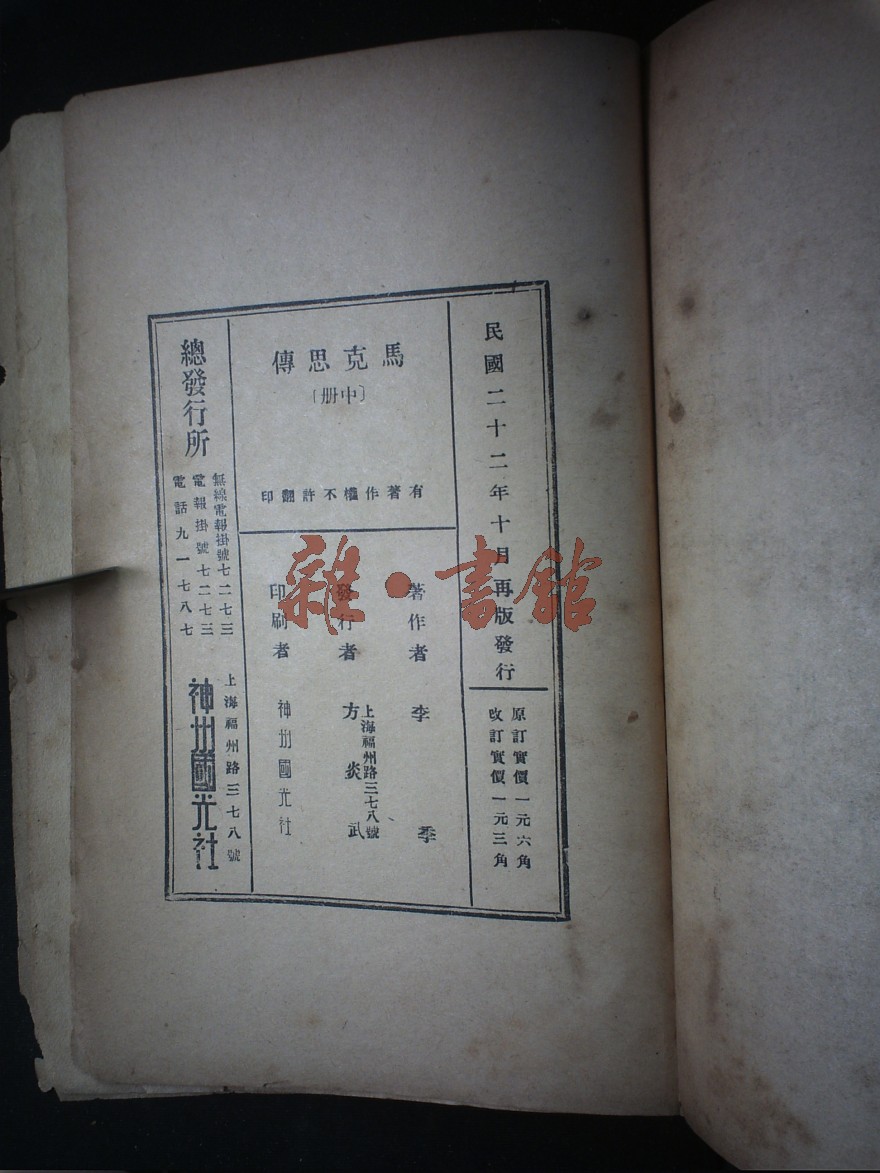 民國二十二年十月再版發行
原訂實價一元六角
改訂實價一元三角
馬克思傳
〔中册〕
有著作權不許翻印
著作者 李季
發行者 上海福州路三七八號 方炎武
印刷者 神州國光社
總發行所
無線電報掛號七二七三
電報掛號七二七三
電話九一七八七
上海福州路三七八號
神州國光社
雜·書館